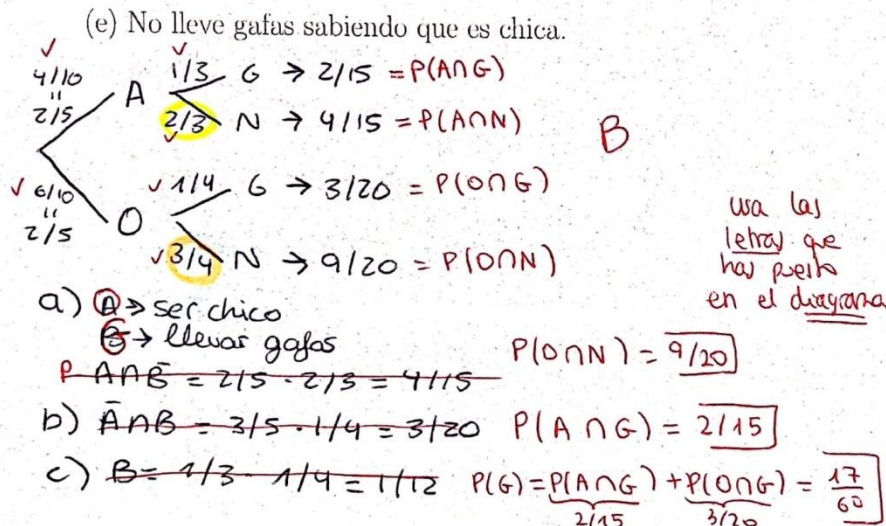 (e) No lleve gafas sabiendo que es chica.
✓ 4/10 = 2/5 A ✓ 1/3 G → 2/15 = P(A∩G)
2/3 ✓ N → 4/15 = P(A∩N)
B
✓ 6/10 = 2/5 O ✓ 1/4 G → 3/20 = P(O∩G)
✓ 3/4 N → 9/20 = P(O∩N)
usa las
letras que
has puesto
en el diagrama
a) A → ser chico
G → llevar gafas
P(O∩N) = 9/20
P A∩B̄ = 2/5 · 2/3 = 4/15
b) Ā∩B = 3/5 · 1/4 = 3/20 P(A∩G) = 2/15
c) B = 1/3 · 1/4 = 1/12 P(G) = P(A∩G) + P(O∩G) = 17/60
2/15 3/20